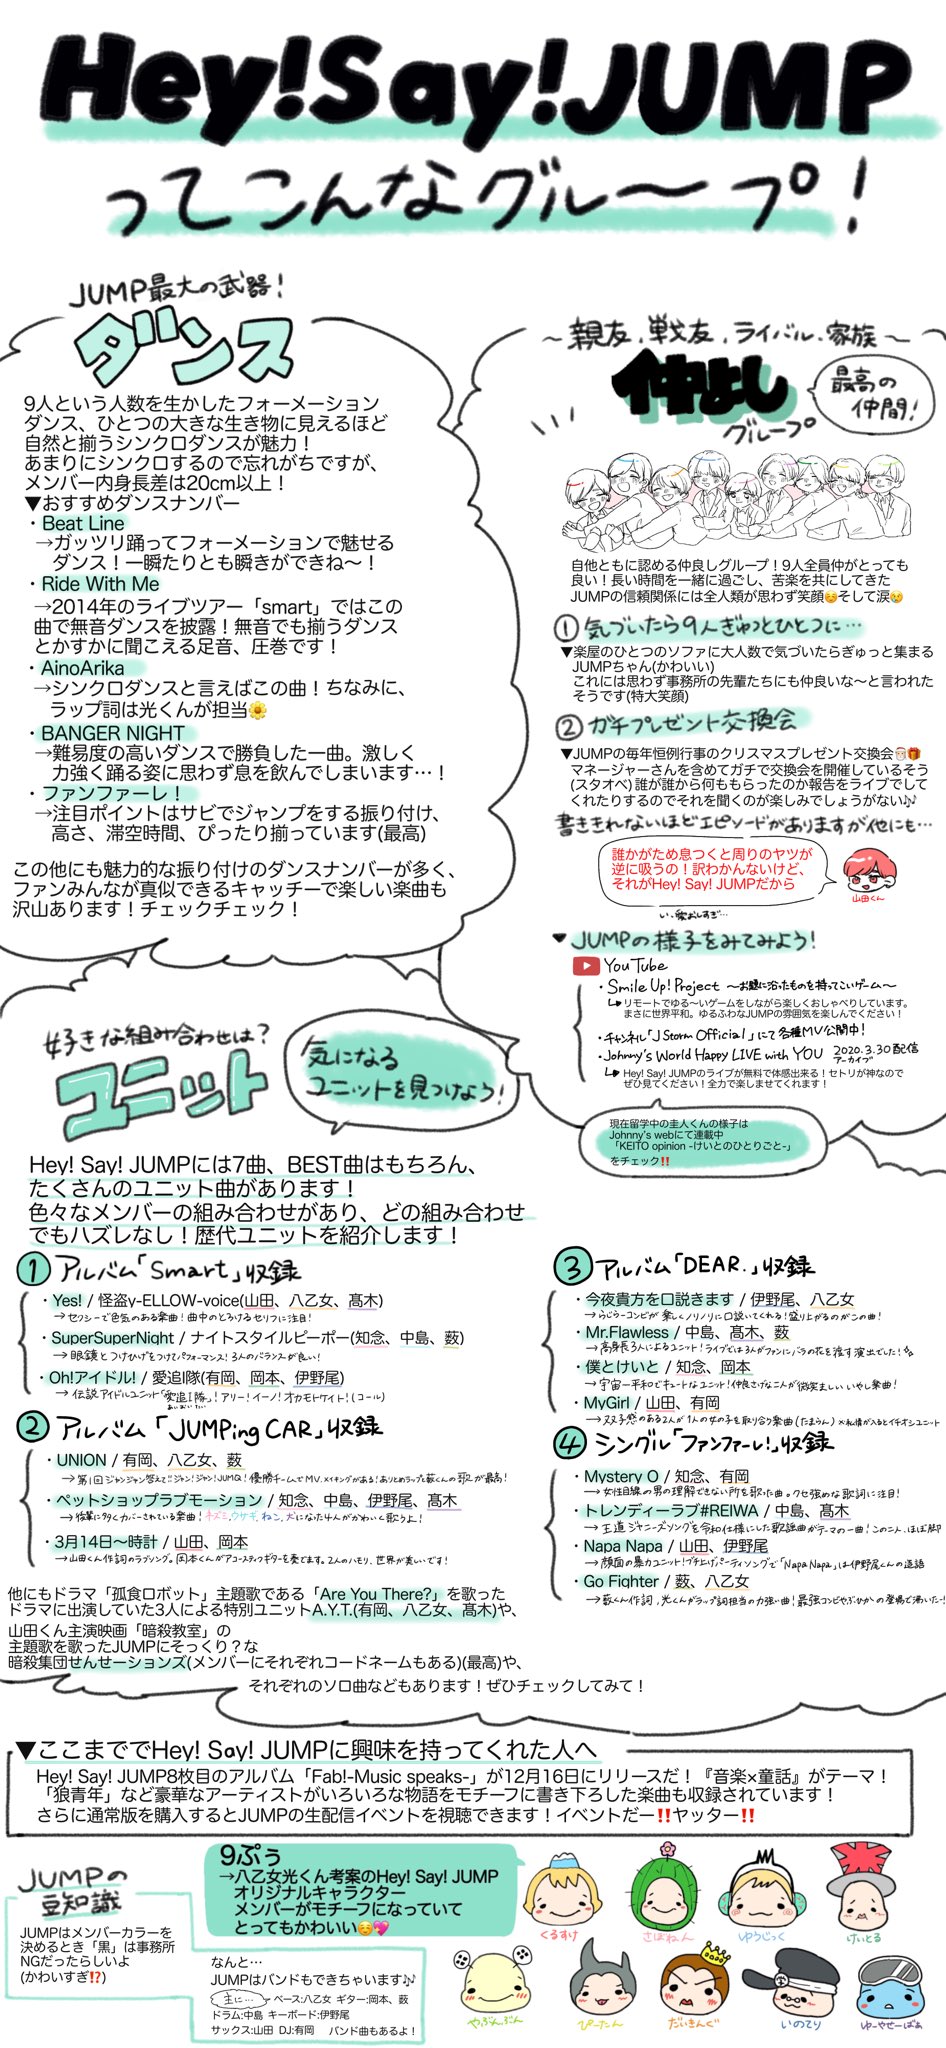 Hey!Say!JUMP
ってこんなグル〜プ！
JUMP最大の武器！
ダンス
9人という人数を生かしたフォーメーション
ダンス、ひとつの大きな生き物に見えるほど
自然と揃うシンクロダンスが魅力！
あまりにシンクロするので忘れがちですが、
メンバー内身長差は20cm以上！
▼おすすめダンスナンバー
・Beat Line
→ガッツリ踊ってフォーメーションで魅せる
ダンス！一瞬たりとも瞬きができね〜！
・Ride With Me
→2014年のライブツアー「smart」ではこの
曲で無音ダンスを披露！無音でも揃うダンス
とかすかに聞こえる足音、圧巻です！
・AinoArika
→シンクロダンスと言えばこの曲！ちなみに、
ラップ詞は光くんが担当🌼
・BANGER NIGHT
→難易度の高いダンスで勝負した一曲。激しく
力強く踊る姿に思わず息を飲んでしまいます…！
・ファンファーレ！
→注目ポイントはサビでジャンプをする振り付け、
高さ、滞空時間、ぴったり揃っています(最高)
この他にも魅力的な振り付けのダンスナンバーが多く、
ファンみんなが真似できるキャッチーで楽しい楽曲も
沢山あります！チェックチェック！
〜親友、戦友、ライバル、家族〜
仲よし
グループ
最高の
仲間！
自他ともに認める仲良しグループ！9人全員仲がとっても
良い！長い時間を一緒に過ごし、苦楽を共にしてきた
JUMPの信頼関係には全人類が思わず笑顔☺️そして涙😢
① 気づいたら9人ぎゅっとひとつに…
▼楽屋のひとつのソファに大人数で気づいたらぎゅっと集まる
JUMPちゃん(かわいい)
これには思わず事務所の先輩たちにも仲良いな〜と言われた
そうです(特大笑顔)
② ガチプレゼント交換会
▼JUMPの毎年恒例行事のクリスマスプレゼント交換会🎅🎁
マネージャーさんを含めてガチで交換会を開催しているそう
(スタオベ) 誰が誰から何ももらったのか報告をライブでして
くれたりするのでそれを聞くのが楽しみでしょうがない🎶
書ききれないほどエピソードがありますが他にも…
誰かがため息つくと周りのヤツが
逆に吸うの！訳わかんないけど、
それがHey! Say! JUMPだから
山田くん
い、愛おしすぎ…
▼JUMPの様子をみてみよう！
YouTube
・Smile Up! Project 〜お題に沿ったものを持ってこいゲーム〜
↳リモートでゆる〜いゲームをしながら楽しくおしゃべりしています。
まさに世界平和。ゆるふわなJUMPの雰囲気を楽しんでください！
・チャンネル「J Storm Official」にて各種MV公開中！
・Johnny's World Happy LIVE with YOU 2020.3.30 配信
アーカイブ
↳Hey! Say! JUMPのライブが無料で体感出来る！セトリが神なので
ぜひ見てください！全力で楽しませてくれます！
現在留学中の圭人くんの様子は
Johnny's webにて連載中
「KEITO opinion -けいとのひとりごと-」
をチェック‼️
好きな組み合わせは？
ユニット
気になる
ユニットを見つけよう！
Hey! Say! JUMPには7曲、BEST曲はもちろん、
たくさんのユニット曲があります！
色々なメンバーの組み合わせがあり、どの組み合わせ
でもハズレなし！歴代ユニットを紹介します！
① アルバム「Smart」収録
・Yes! / 怪盗y-ELLOW-voice(山田、八乙女、髙木)
→セクシーで色気のある楽曲！曲中のとろけるセリフに注目！
・SuperSuperNight / ナイトスタイルピーポー(知念、中島、薮)
→眼鏡とつけひげをつけてパフォーマンス！3人のバランスが良い！
・Oh!アイドル! / 愛追I隊(有岡、岡本、伊野尾)
→伝説アイドルユニット「愛追I隊」！アリー！イーノ！オカモトケイト！(コール)
あいおいたい
② アルバム「JUMPing CAR」収録
・UNION / 有岡、八乙女、薮
→第1回ジャンジャン答えて!!ジャン！ジャン！JUMQ！優勝チームでMV、メイキングがある！ありとめラップと薮くんの歌が最高！
・ペットショップラブモーション / 知念、中島、伊野尾、髙木
→後輩に多くカバーされている楽曲！ネズミ、ウサギ、ねこ、犬になった4人がかわいく歌うよ！
・3月14日〜時計 / 山田、岡本
→山田くん作詞のラブソング。岡本くんがアコースティックギターを奏でます。2人のハモリ、世界が美しいです！
他にもドラマ「孤食ロボット」主題歌である「Are You There?」を歌った
ドラマに出演していた3人による特別ユニットA.Y.T.(有岡、八乙女、髙木)や、
山田くん主演映画「暗殺教室」の
主題歌を歌ったJUMPにそっくり？な
暗殺集団せんせーションズ(メンバーにそれぞれコードネームもある)(最高)や、
それぞれのソロ曲などもあります！ぜひチェックしてみて！
③ アルバム「DEAR.」収録
・今夜貴方を口説きます / 伊野尾、八乙女
→らじらーコンビが楽しくノリノリに口説いてくれる！盛り上がるのがこの曲！
・Mr.Flawless / 中島、髙木、薮
→高身長3人によるユニット！ライブでは3人がファンにバラの花を渡す演出でした！
・僕とけいと / 知念、岡本
→宇宙一平和でキュートなユニット！仲良さげな二人が微笑ましい、いやし楽曲！
・MyGirl / 山田、有岡
→双子感のある2人が1人の女の子を取り合う楽曲(たまらん) ※私情が入るとイチオシユニット
④ シングル「ファンファーレ！」収録
・Mystery O / 知念、有岡
→女性目線の男の理解できない所を歌った曲。クセ強めな歌詞に注目！
・トレンディーラブ#REIWA / 中島、髙木
→王道ジャニーズソングを令和仕様にした歌謡曲がテーマの一曲！この二人、ほぼ脚
・Napa Napa / 山田、伊野尾
→顔面の暴力ユニット！ブチ上げパーティソングで「Napa Napa」は伊野尾くんの造語
・Go Fighter / 薮、八乙女
→薮くん作詞、光くんがラップ詞担当の力強い曲！最強コンビやぶひかの登場で沸いた…！
▼ここまででHey! Say! JUMPに興味を持ってくれた人へ
Hey! Say! JUMP8枚目のアルバム「Fab!-Music speaks-」が12月16日にリリースだ！『音楽×童話』がテーマ！
「狼青年」など豪華なアーティストがいろいろな物語をモチーフに書き下ろした楽曲も収録されています！
さらに通常版を購入するとJUMPの生配信イベントを視聴できます！イベントだー‼️ヤッター‼️
JUMPの
豆知識
JUMPはメンバーカラーを
決めるとき「黒」は事務所
NGだったらしいよ
(かわいすぎ⁉️)
9ぷぅ
→八乙女光くん考案のHey! Say! JUMP
オリジナルキャラクター
メンバーがモチーフになっていて
とってもかわいい☺️💖
なんと…
JUMPはバンドもできちゃいます🎶
主に… ベース:八乙女 ギター:岡本、薮
ドラム:中島 キーボード:伊野尾
サックス:山田 DJ:有岡 バンド曲もあるよ！
くるすけ
さぼねん
ゆうじっく
けいとる
やぶんぶん
ぴーたん
だいきんぐ
いのてり
ゆーやせーばぁ